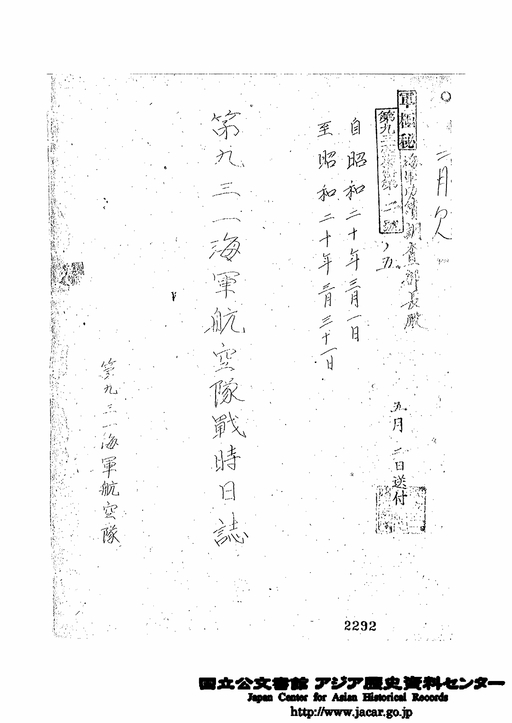 二月欠
軍極秘
海軍功績調査部長殿
自昭和二十年三月一日
至昭和二十年三月三十一日
五月二日送付
第九三一海軍航空隊戦時日誌
第九三一海軍航空隊
2292
国立公文書館 アジア歴史資料センター
Japan Center for Asian Historical Records
http://www.jacar.go.jp